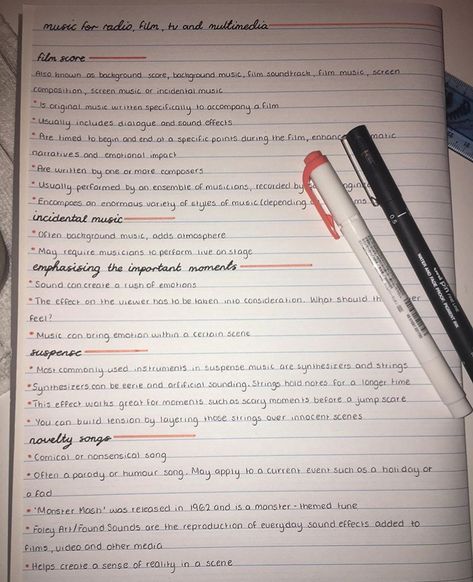 music for radio, film, tv and multimedia
film score
Also known as background score, background music, film soundtrack, film music, screen
composition, screen music or incidental music
* Is original music written specifically to accompany a film
* Usually includes dialogue and sound effects
* Are timed to begin and end at a specific points during the film, enhanc matic
narratives and emotional impact
* Are written by one or more composers
* Usually performed by an ensemble of musicians, recorded by
* Encompases an enormous variety of styles of music (depending
incidental music
* Often background music, adds atmosphere
* May require musicians to perform live on stage
emphasising the important moments
* Sound can create a rush of emotions
* The effect on the viewer has to be taken into consideration. What should th er
feel?
* Music can bring emotion within a certain scene
suspense
* Most commonly used instruments in suspense music are synthesizers and strings
* Synthesizers can be eerie and artificial sounding. Strings hold notes for a longer time
* This effect works great for moments such as scary moments before a jump scare
* You can build tension by layering those strings over innocent scenes
novelty songs
* Comical or nonsensical song
* Often a parody or humour song. May apply to a current event such as a holiday or
a fad
* 'Monster Mash' was released in 1962 and is a monster-themed tune
* Foley Art/Found Sounds are the reproduction of everyday sound effects added to
films, video and other media
* Helps create a sense of reality in a scene
0.5
uni pin
WATER AND FADE PROOF PIGMENT INK